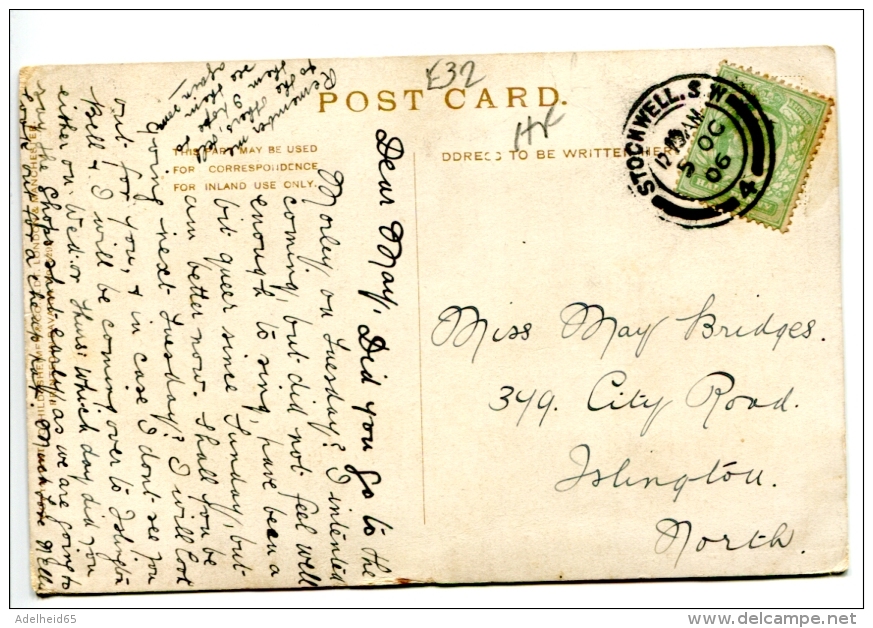 £32
POST CARD.
HF
THIS PART MAY BE USED
FOR CORRESPONDENCE
FOR INLAND USE ONLY.
DDRESS TO BE WRITTEN HERE
STOCKWELL. S.W
12.15AM
5 OC
06
4
Miss May Bridges.
349. City Road.
Islington.
North.
Dear May, Did you go to the
Morley on Tuesday? I intented
coming, but did not feel well
enough to sing, have been a
bit queer since Sunday, but
am better now. Shall you be
going next Tuesday? I will look
out for you, & in case I dont see you
Bell & I will be coming over to Islington
either on Wed: or Thurs: which day did you
say the shops shut early, as we are going to
look out for a cheap hat. Much Love Nell
Remember me
to the others tell
them I hope to
see them soon
again
Adelheid65
delcampe.net